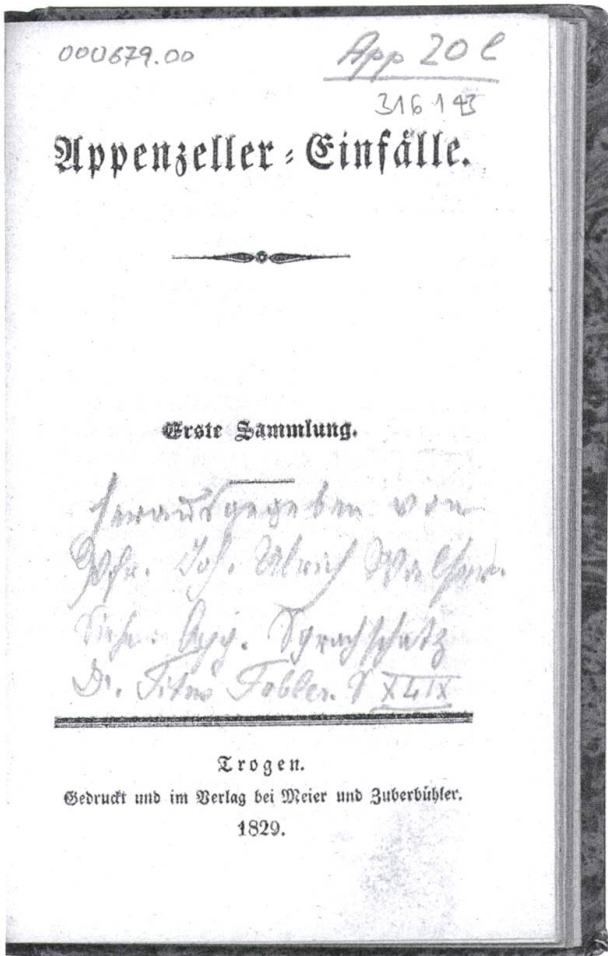 000679.00
App 20 l
316 143
Appenzeller-Einfälle.
Erste Sammlung.
herausgegeben von
Pfr. Joh. Ulrich Walser.
Siehe: App. Sprachschatz
Dr. Titus Tobler. S XLIX
Trogen.
Gedruckt und im Verlag bei Meier und Zuberbühler.
1829.